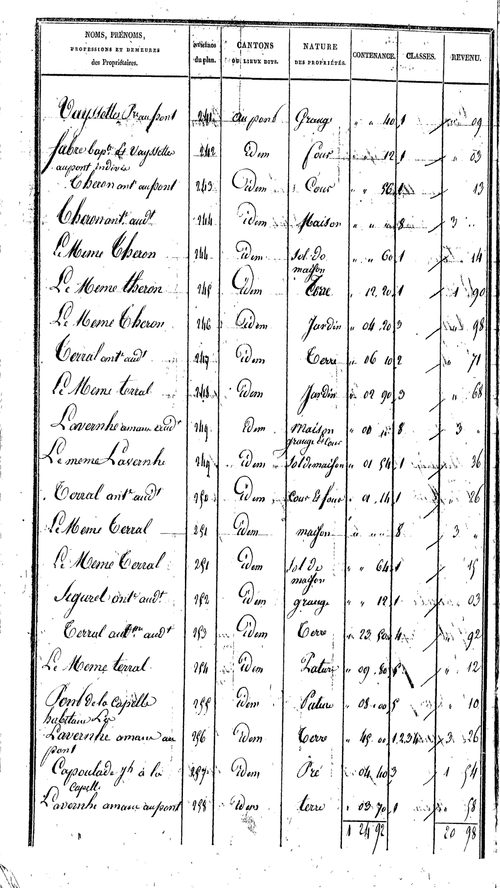 NOMS, PRÉNOMS, PROFESSIONS ET DEMEURES des Propriétaires. du plan. CANTONS OU LIEUX DITS. NATURE DES PROPRIÉTÉS. CONTENANCE. CLASSES. REVENU.
Vayssette au pont 241 au pont Grange " " 40 1 " 09
fabre bapt. & Vayssette 242 idem four " " 12 1 " 03
au pont indivis
Theron ant au pont 243 idem Cour " " 56 1 " 13
Theron ant. audt 244 idem Maison " " " 8 3 "
Le Meme Theron 244 idem Sol de " " 60 1 " 14
maison
Le Meme theron 245 idem Terre " 12 20 1 1 90
Le Meme Theron 246 idem Jardin " 04 20 3 " 98
Terral ant audt 247 idem Terre " 06 10 2 " 71
Le Meme terral 248 idem Jardin " 02 90 3 " 68
Lavernhe amans audt 249 idem Maison 8 3 "
grange et Cour
Le meme Lavernhe 249 idem Sol de maison " 01 54 1 " 36
Terral ant audt 250 idem Cour & four " 01 14 1 " 26
Le Meme Terral 251 idem maison " " " 8 3 "
Le Meme Terral 251 idem Sol de " " 64 1 " 15
maison
Seguret ant audt 252 idem grange " " 12 1 " 03
Terral audt 253 idem Terre " 23 50 4 " 92
Le Meme terral 254 idem Pature " 09 80 5 " 12
Pont de la Capelle 255 idem Pature " 08 00 5 " 10
habitans
Lavernhe amans au 256 idem Terre " 45 00 1,2,3,4 3 26
pont
Capoulade jh à la 257 idem Pré " 04 40 3 1 54
Capell.
Lavernhe amans au pont 258 idem terre " 03 70 1 " 58
1 24 92 20 98